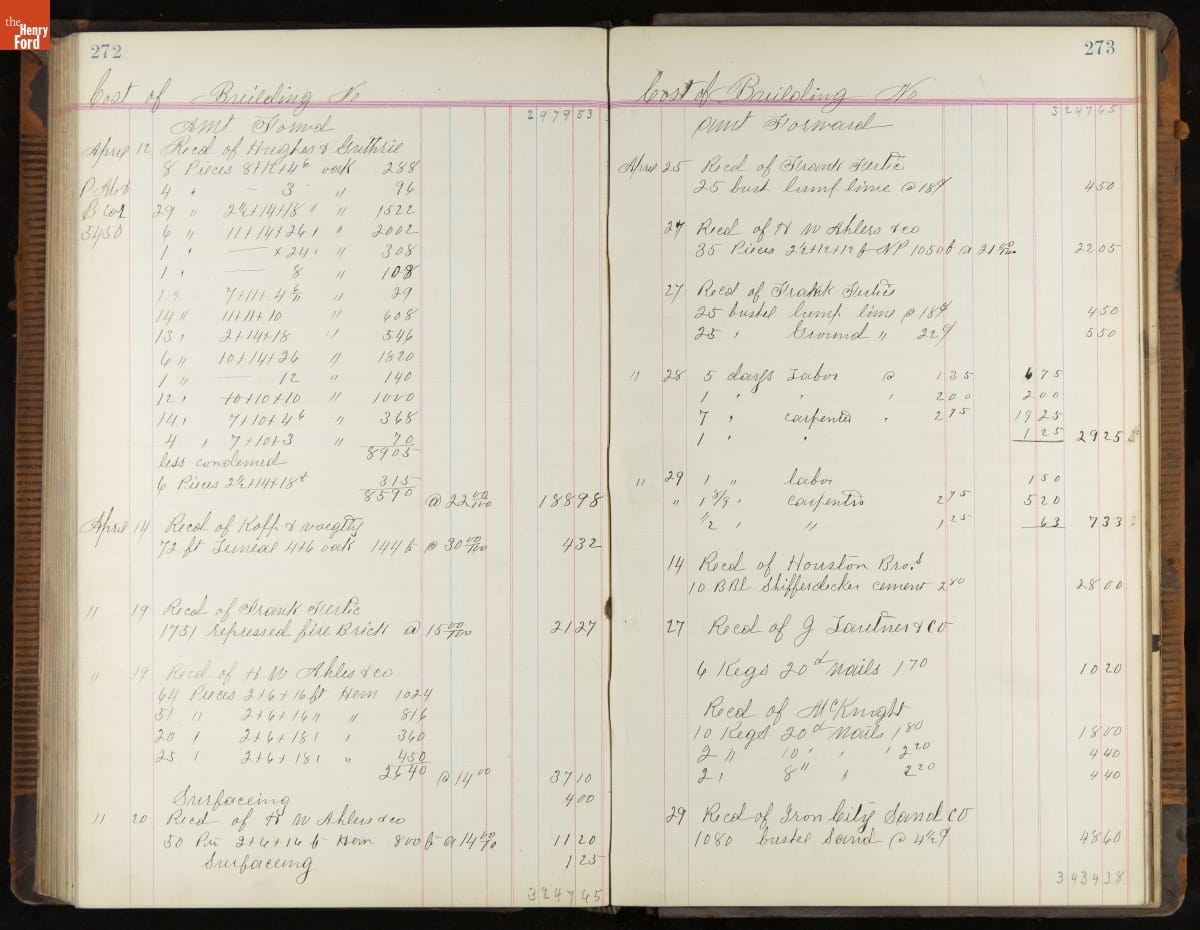 the Henry Ford
272
Cost of Building No
Amt Forwd 297953
April 12 Recd of Hughes & Guthrie
8 Pieces 8+12+4 6 oak 288
4 " — 3 " 96
29 " 2½+14+18 " " 1522
5450 6 " 11+14+26 " " 2002
1 " — x24 " " 308
1 " — 8 " 108
1 " 7+11+4 6 " 29
14 " 11+11+10 " 608
13 " 2+14+18 " 546
6 " 10+14+26 " 1820
1 " — 12 " 140
12 " 10+10+10 " 1000
14 " 7+10+4 6 " 368
4 " 7+10+3 " 70
less condemned 8905
6 Pieces 2½+14+18 315
8590 @ 22 00/100 18898
April 14 Recd of Kopp &
72 ft Lineal 4+6 oak 144 ft @ 30 00/100 432
" 19 Recd of Frank Fertic
1751 repressed fire Brick @ 15 00/100 2127
" 19 Recd of H W Ahles & co
64 Pieces 2+6+16 ft Hem 1024
51 " 2+6+16 " " 816
20 " 2+6+18 " " 360
25 " 2+6+18 " " 450
2640 @ 14 00 3710
Surfaceing 400
" 20 Recd of H W Ahlers & co
50 Pcs 2+6+16 ft Hem 800 ft @ 14 00/100 1120
Surfaceing 125
324765
273
Cost of Building No
324765
Amt Forward
April 25 Recd of Frank Fertic
25 bust lump lime @ 18¢ 450
27 Recd of H W Ahlers & co
35 Pieces 2½+12+12 ft NP 1050 ft @ 21 00/100 2205
27 Recd of Frank Fertic
25 bushel lump lime @ 18¢ 450
25 " Ground " 22¢ 550
" 28 5 days Labor @ 135 675
1 " " " 200 200
7 " carpenter " 275 1925
1 " " 125 2925
" 29 1 " labor 150
" 1 8/9 " carpenters 275 520
1/2 " " 125 63 733
14 Recd of Houston Bros
10 BBl Shifferdecker cement 2 80 2800
27 Recd of J Lautner & co
6 Kegs 20d Nails 170 1020
Recd of McKnight
10 Kegs 20d Nails 1 80 1800
2 " 10 " " 2 20 440
2 " 8 " " 2 20 440
29 Recd of Iron City Sand co
1080 bushel Sand @ 4½¢ 4860
343438